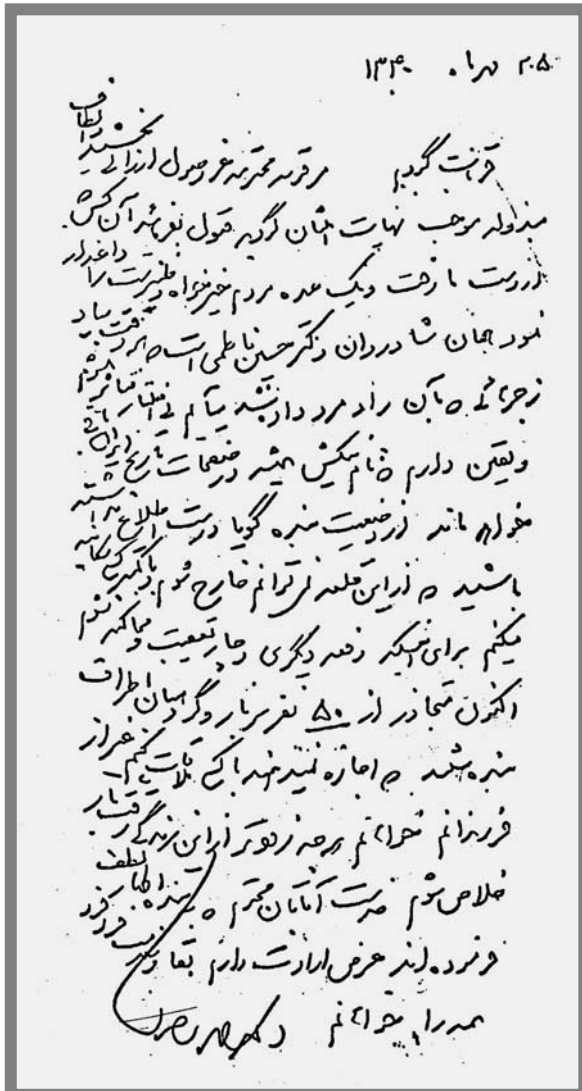 ۲۵ مهرماه ۱۳۴۰
قربانت گردم مرقومه محترمه عز وصول ارزانی بخشید الطاف
مبذوله موجب نهایت امتنان گردید قبول بفرمائید آن کس
از دست ما رفت و یک عده مردم خیرخواه و وطن‌پرست را داغدار
نمود همان شادروان دکتر حسین فاطمی است هر وقت بیاد
زجرهائی که بآن رادمرد دادند می‌آیم بی اختیار متأثر میشوم
و یقین دارم که نام نیکش همیشه در صفحات تاریخ ایران باقی
خواهد ماند از وضعیت بنده گویا درست اطلاع نداشته
باشید که از این قلعه نمی‌توانم خارج شوم و با کمتر کسی مکاتبه
میکنم برای اینکه دفعه دیگری دچار تعقیب و محاکمه نشوم
اکنون متجاوز از ۵۰ نفر سرباز و گروهبان اطراف
بنده هستند که اجازه نمیدهند با کسی ملاقات کنم غیر از
فرزندانم میخواهم هر چه زودتر از این زندگی رقت بار
خلاص شوم خدمت آقایان محترم که به بنده اظهار لطف
فرموده‌اند عرض ارادت دارم بقا و سلامت فرد فرد
همه را میخواهانم دکتر محمد مصدق